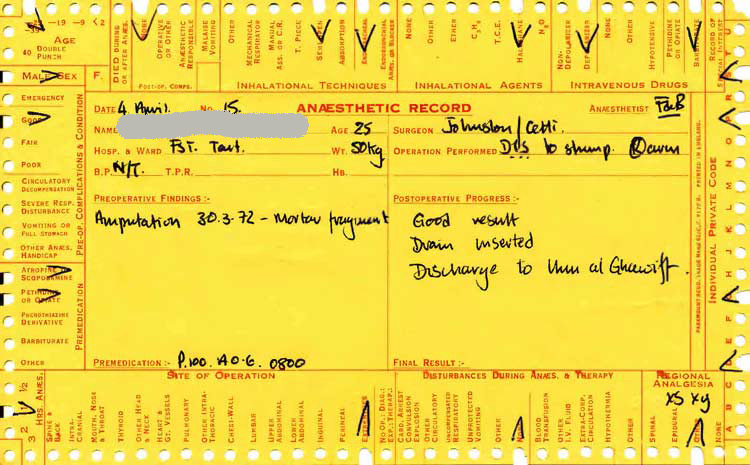 -19-9 <2
AGE
40 DOUBLE PUNCH
MALE SEX F.
DIED DURING OR AFTER ANÆS.
OTHER
OPERATIVE OR OTHER
ANÆSTHETIC RESPONSIBLE
MALAISE VOMITING
POST-OP. COMPS.
OTHER
MECHANICAL RESPIRATOR
MANUAL ASS. OR C.R.
T. PIECE
SEMI-OPEN
ABSORPTION
ENDOTRACHEAL
INHALATIONAL TECHNIQUES
NONE
OTHER
ETHER
T.C.E.
HALOTHANE
N₂O
INHALATIONAL AGENTS
NON-DEPOLARIZER
DEPOLARIZER
NONE
OTHER
HYPOTENSIVE
PETHIDINE OR OPIATE
INTRAVENOUS DRUGS
RECORD OF SPECIAL INTEREST
EMERGENCY
GOOD
FAIR
POOR
CIRCULATORY DECOMPENSATION
SEVERE RESP. DISTURBANCE
VOMITING OR FULL STOMACH
OTHER ANÆS. HANDICAP
PRE-OP. COMPLICATIONS & CONDITION
ATROPINE OR SCOPOLAMINE
PETHIDINE OR OPIATE
PHENOTHIAZINE DERIVATIVE
BARBITURATE
OTHER
PREMEDICATION
DATE 4 April. No. 15. ANÆSTHETIC RECORD ANÆSTHETIST
NAME AGE 25 SURGEON Johnston/Cetti.
HOSP. & WARD FST. Taut. WT. 50kg OPERATION PERFORMED DPS to stump. (R) arm
B.P. N/T. T.P.R. HB.
PREOPERATIVE FINDINGS :- POSTOPERATIVE PROGRESS :-
Amputation 30.3.72 - Mortar fragment Good result
Drain inserted
Discharge to Umm al Ghawarif.
PREMEDICATION :- P.100. A0.6. 0800 FINAL RESULT :-
INDIVIDUAL PRIVATE CODE
PRINTED IN ENGLAND.
SITE OF OPERATION DISTURBANCES DURING ANÆS. & THERAPY REGIONAL ANALGESIA
xs xy
HRS ANÆS.
SPINE & BACK
INTRA-CRANIAL
MOUTH, NOSE & THROAT
THYROID
OTHER HEAD & NECK
HEART & GT. VESSELS
PULMONARY
OTHER INTRA-THORACIC
CHEST-WALL
LUMBAR
UPPER ABDOMINAL
LOWER ABDOMINAL
INGUINAL
PERINEAL
EXTREMITIES
NO OP., DIAG.: EXP. THERAP.
CARD. ARREST
CONVULSION
EXPLOSION
OTHER CIRCULATORY
UNCOMPENSATED RESPIRATORY
UNPROTECTED VOMITING
OTHER
NONE
BLOOD TRANSFUSION
I.V. FLUID
EXTRA-CORP. CIRCULATION
HYPOTHERMIA
OTHER
SPINAL
EPIDURAL
OTHER
NONE